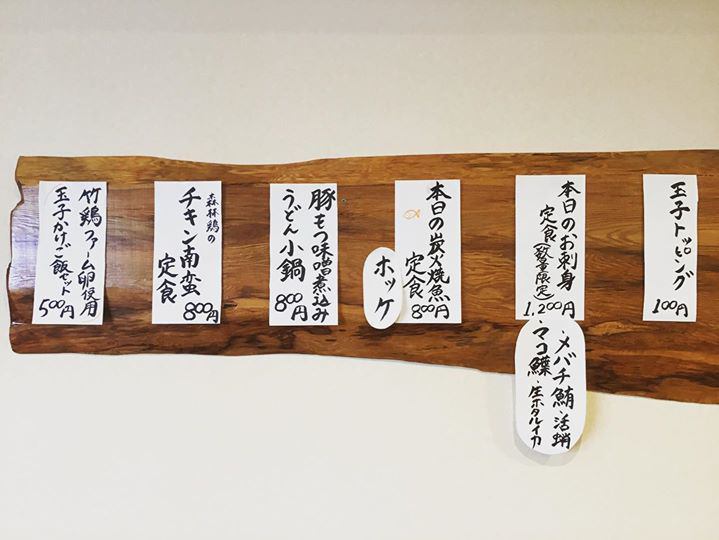 玉子トッピング
100円
本日のお刺身
定食(数量限定)
1,200円
・メバチ鮪・活蛸
マコ鰈・生ホタルイカ
本日の炭火焼魚
定食
800円
ホッケ
豚もつ味噌煮込み
うどん小鍋
800円
森林鶏の
チキン南蛮
定食
800円
竹鶏ファーム卵使用
玉子かけご飯セット
500円